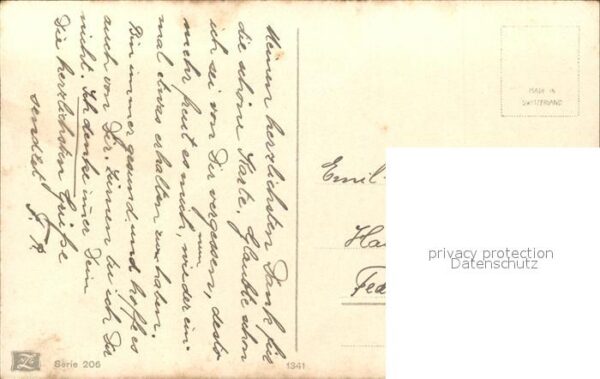 Meinen herzlichsten Dank für
die schöne Karte. Glaubte schon
ich sei von Dir vergessen, desto
mehr freut es mich, wieder ein
nun
mal etwas erhalten zu haben.
Bin immer gesund und hoffe es
auch von Dir. Zürnen tu ich Dir
nicht. Ich denke immer Dein
Die herzlichsten Grüße
sendet
MADE IN
SWITZERLAND
Emil
Ha
Fed
privacy protection
Datenschutz
Serie 206
1341